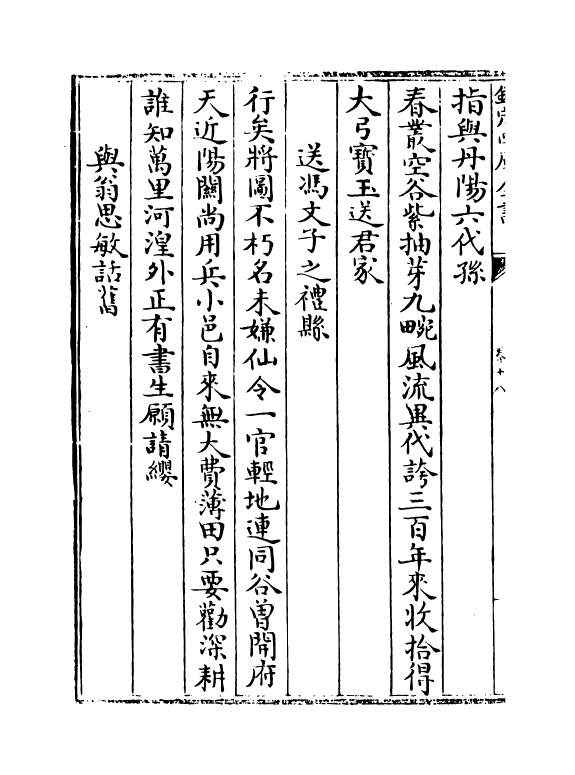 欽定四庫全書
卷十八
指與丹陽六代孫
春叢空谷紫抽芽九畹風流異代誇三百年來收拾得
大弓寶玉送君家
送馮文子之禮縣
行矣將圖不朽名未嫌仙令一官輕地連同谷曽開府
天近陽關尚用兵小邑自來無大費薄田只要勸深耕
誰知萬里河湟外正有書生願請纓
與翁思敏話舊